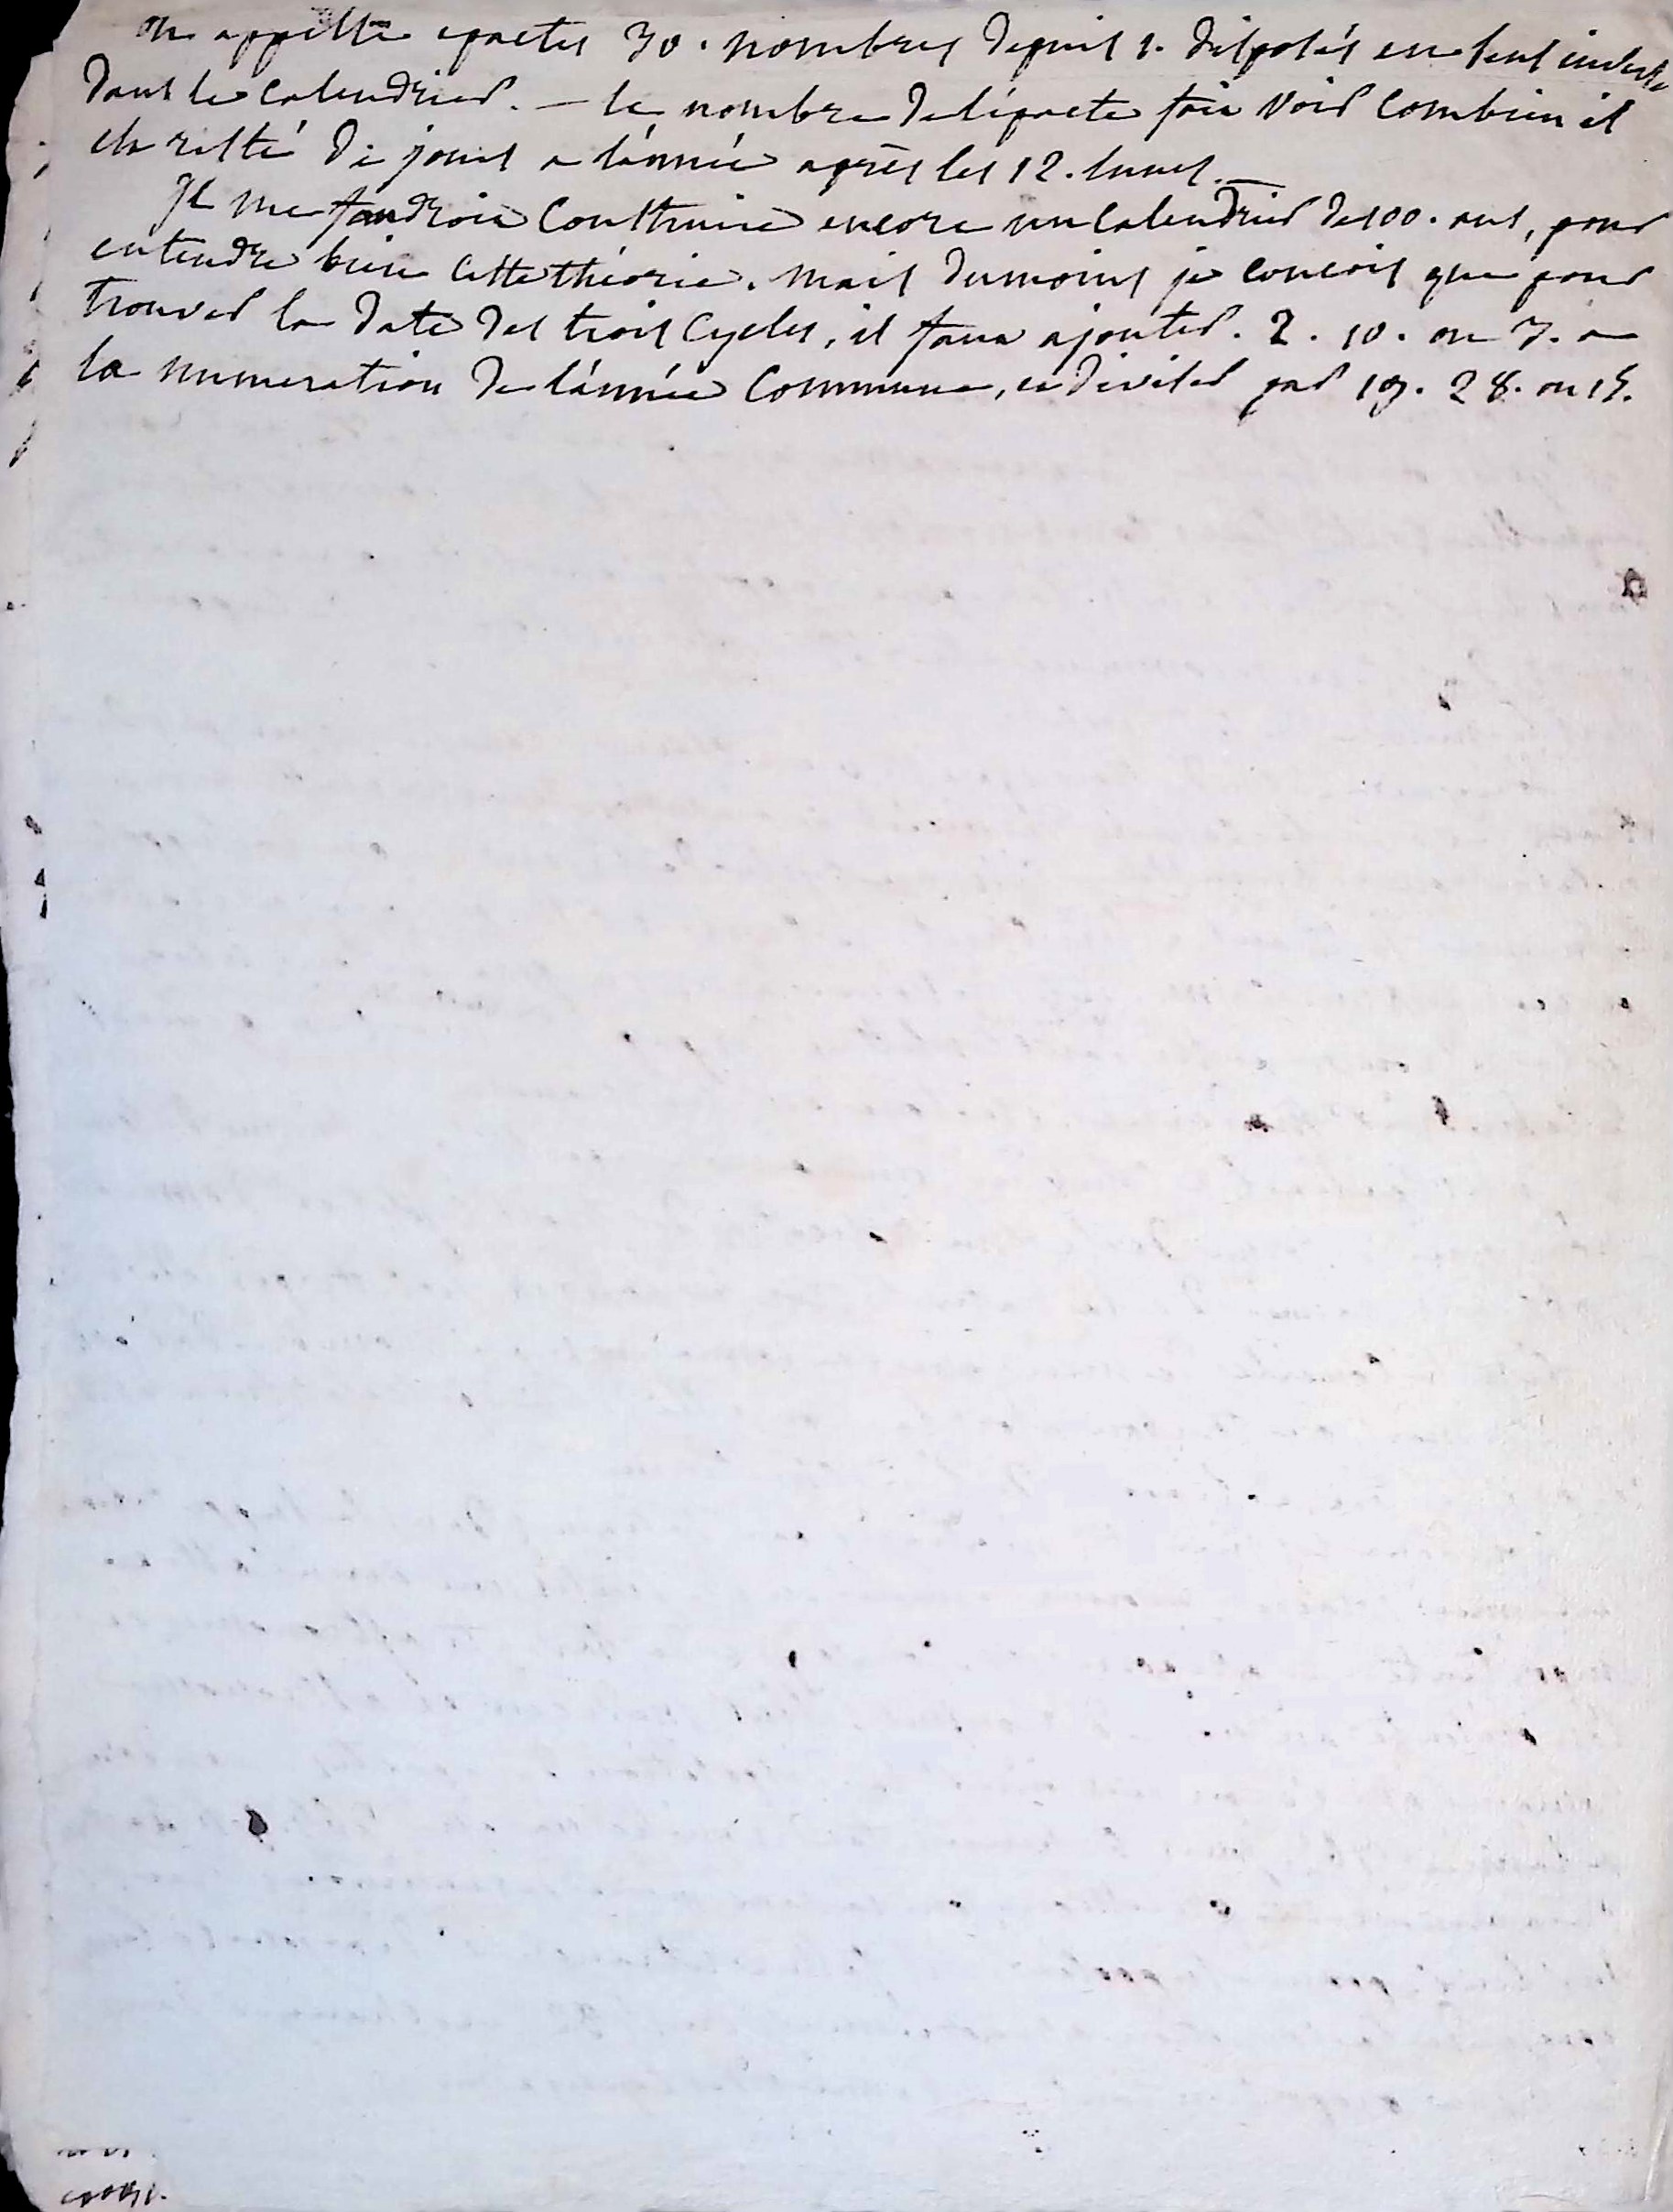 on appelle epactes 30. nombres depuis 1. disposés en sens inverse
dans le calendrier. — le nombre de l'épacte fait voir combien il
est resté de jours a l'année après les 12. lunes. —
Il me faudroit construire encore un calendrier de 100. ans, pour
entendre bien cette théorie. mais du moins je conçois que pour
trouver la date des trois cycles, il faut ajouter. 2. 10. ou 3. a
la numeration de l'année commune, et diviser par 19. 28. ou 15.